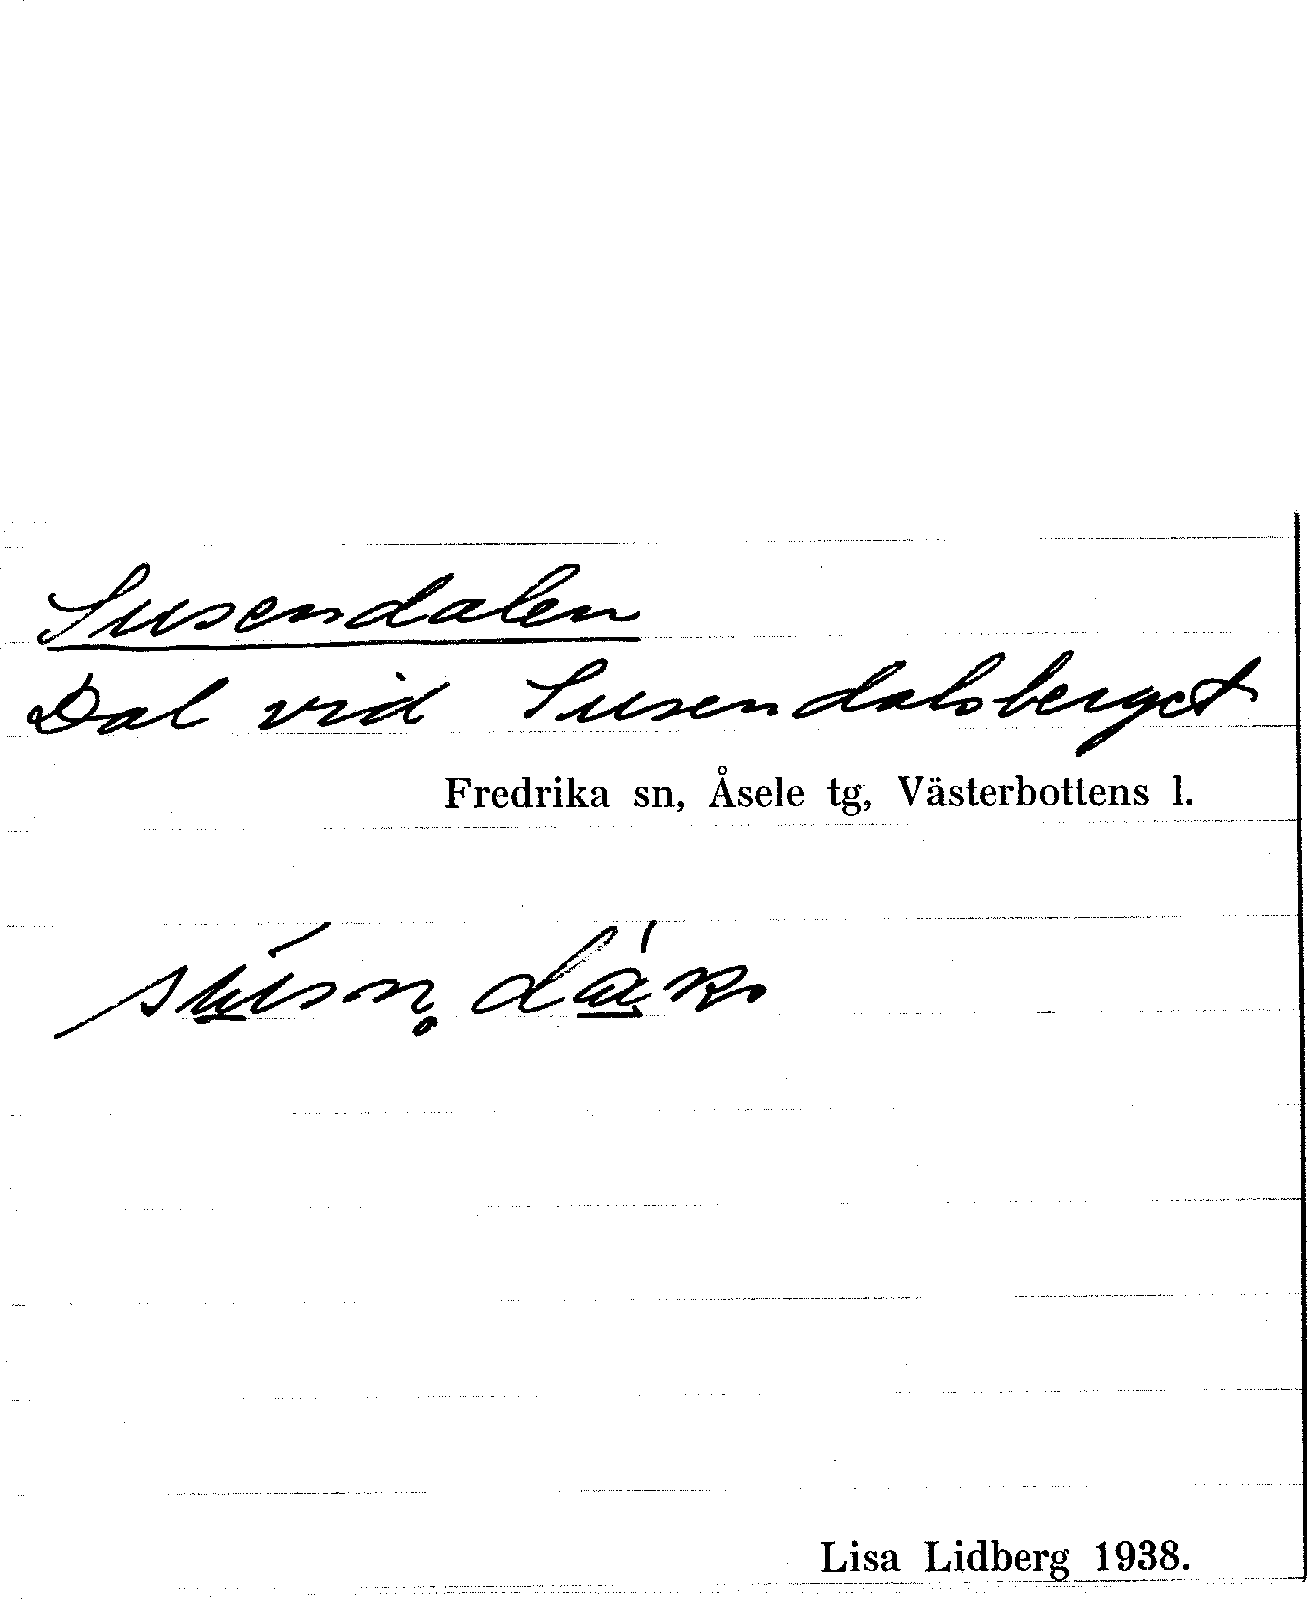 Susendalen
Dal vid Susendalsberget
Fredrika sn, Åsele tg, Västerbottens l.
Lisa Lidberg 1938.